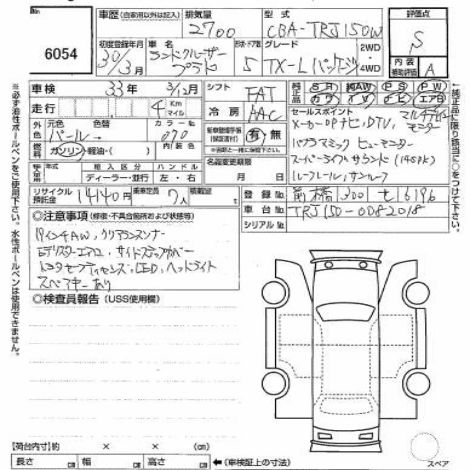 6054
車歴 (自家用以外は記入) 排気量 型式 評価点
2700 CBA-TRJ150W S
初度登録年月 車名 ドア形状 グレード
30/3月 ランドクルーザー プラド 5 TX-L(パッケージ) 2WD・4WD
内装 補助評価 A
車検 33年 3/12月 シフト FAT
純正品 SR 純AW PS PW
カワ TV ナビ エアB
走行 4 Km マイル 冷房 AAC
外装 元色 色替 カラーNo.
パール→ 070
燃料 ガソリン・軽油・( ) 内装色
有・無
セールスポイント
メーカーOPナビ, DTV, マルチテレイン モニター
パノラミックビューモニター
スーパーライブサウンド(14SPK)
ルーフレール, サンルーフ
輸入区分 ハンドル
ディーラー・並行 左・右
名義変更期限 月 日
リサイクル預託金 14140円 乗車定員 7人 積載量
登録No. 前橋 300 セ 6196
車台No. TRJ150-0082018
シリアルNo.
◎注意事項 (修復・不具合箇所および状態等)
19インチAW, クリアランスソナー
モデリスタエアロ, サイドステップカバー
トヨタセーフティセンス, LEDヘッドライト
スペアキーあり
◎検査員報告 (USS使用欄)
【荷台内寸】(約 × × (cm)
長さ cm 幅 cm 高さ cm ←(車検証上の寸法)
スペア
※必ず油性ボールペンをご使用下さい。水性ボールペンは使用できません。
※純正品に限り該当に○をつけて下さい。